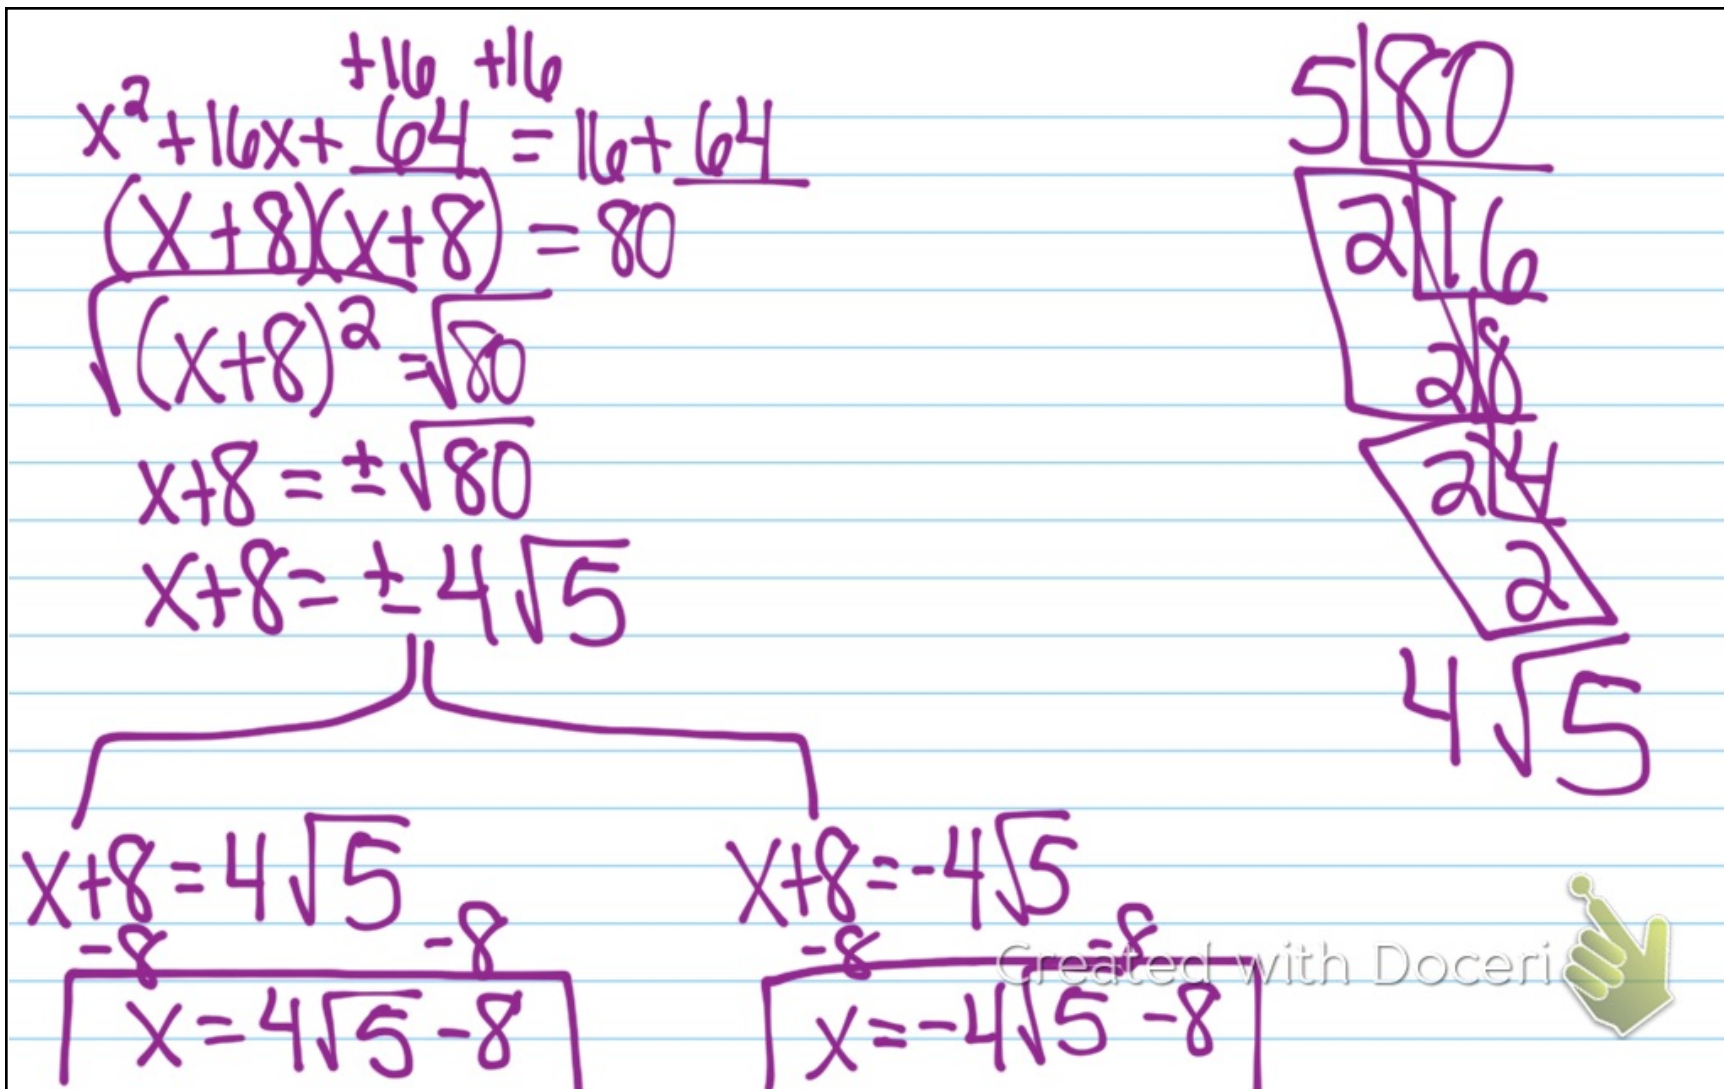 +16 +16
x² + 16x + 64 = 16 + 64
(x+8)(x+8) = 80
√(x+8)² = √80
x+8 = ±√80
x+8 = ± 4√5
x+8 = 4√5
-8 -8
x = 4√5 - 8
x+8 = -4√5
-8 -8
x = -4√5 - 8
5 80
2 16
2 8
2 4
2
4√5
Created with Doceri